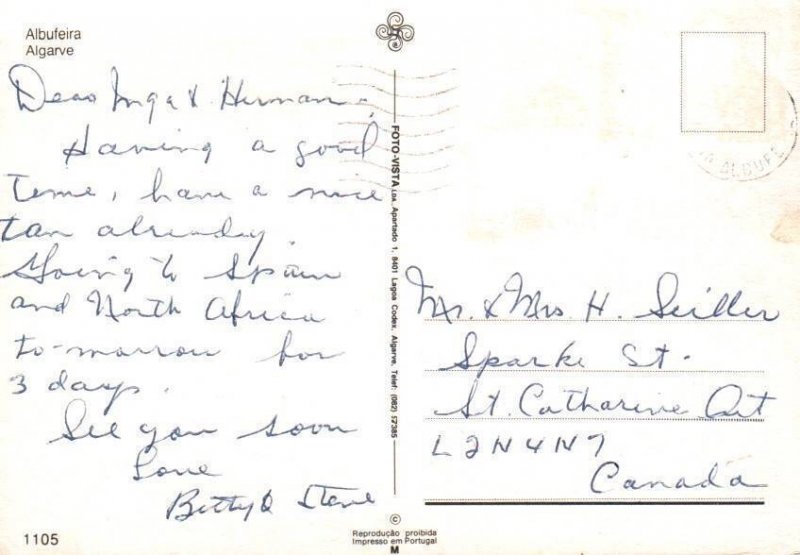 Albufeira
Algarve
Dear Inga & Herman
Having a good
time, have a nice
tan already.
Going to Spain
and North Africa
to-morrow for
3 days.
See you soon
Love
Betty & Steve
1105
FOTO-VISTA Lda. Apartado 1, 8401 Lagoa Codex, Algarve, Telef: (082) 52385
©
Reprodução proibida
Impresso em Portugal
M
Mr. & Mrs H. Seiller
Sparke St.
St. Catharine Ont
L2N4N7
Canada